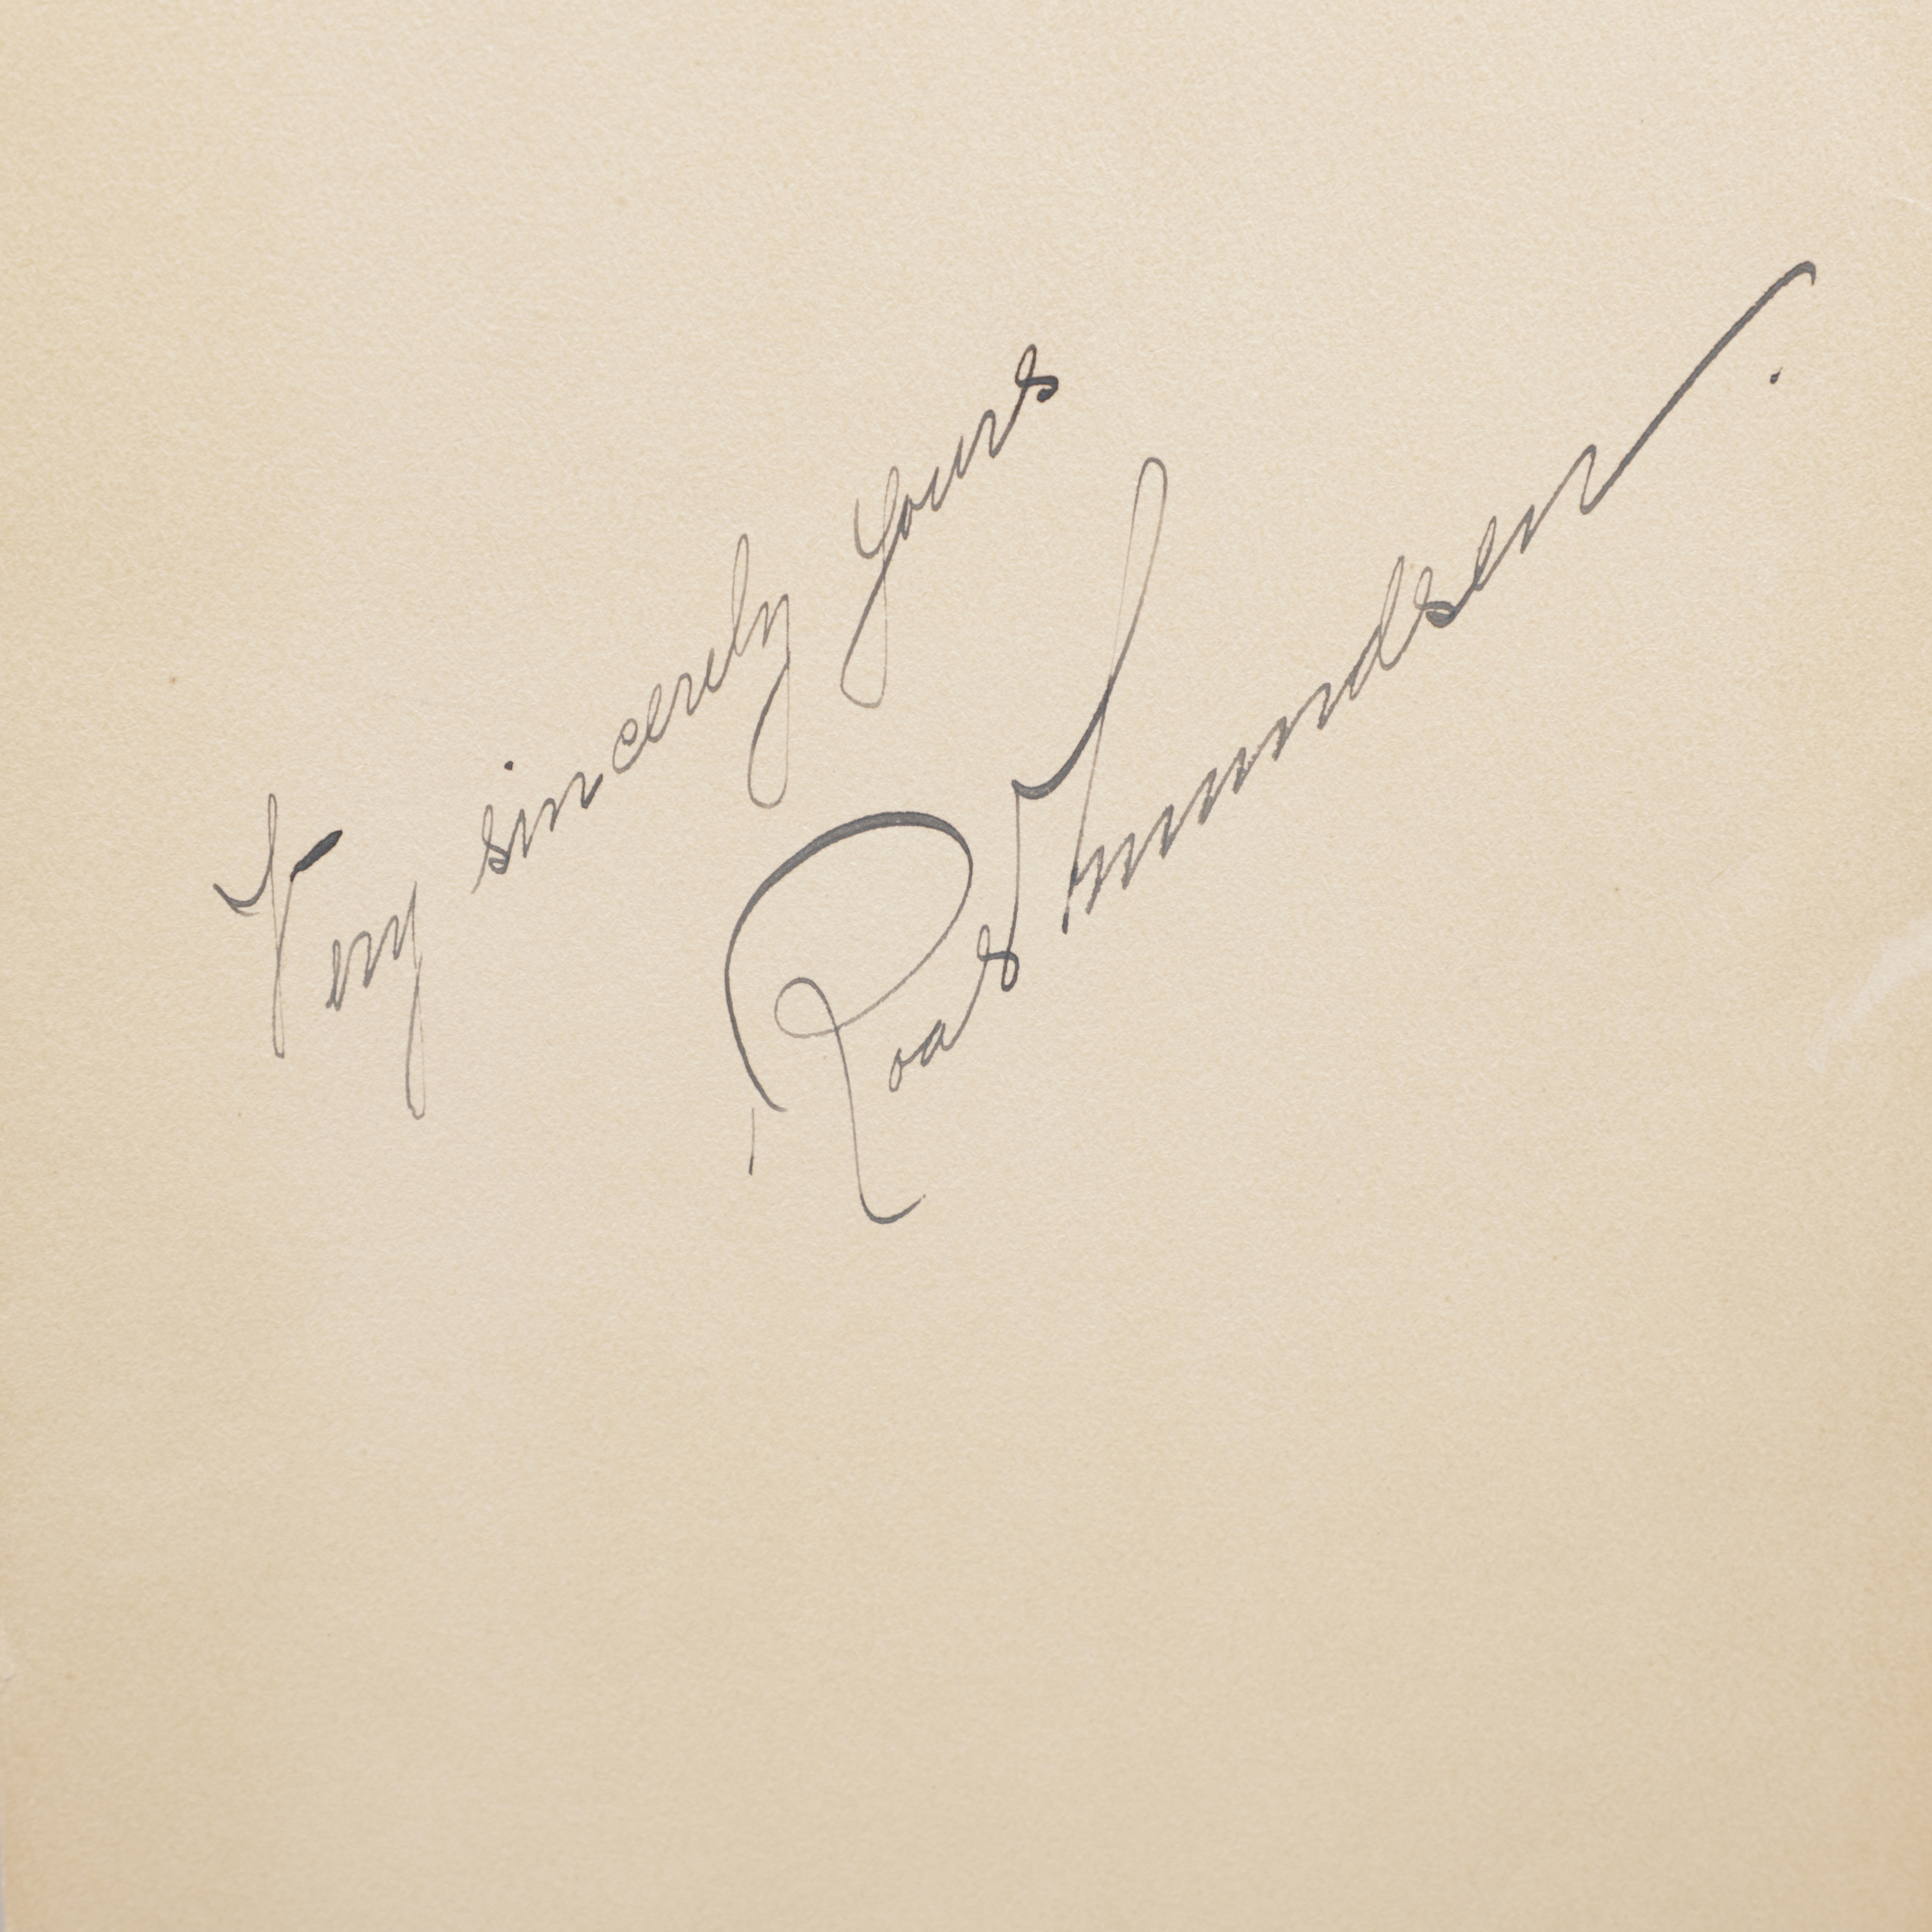 Very sincerely yours
Roald Amundsen.